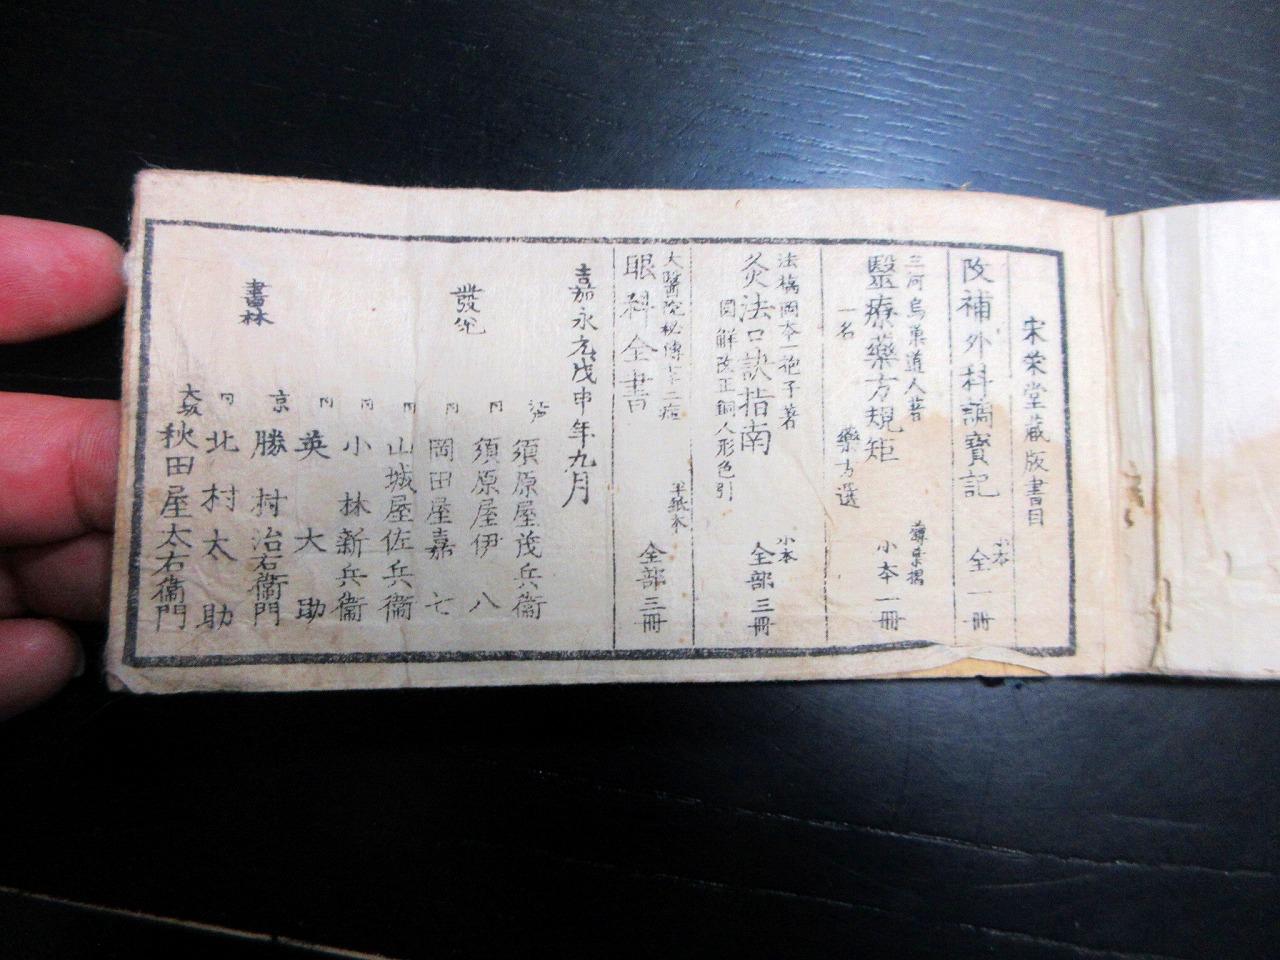 宋榮堂蔵版書目
小本
改補外科調寶記 全一冊
三河烏巣道人著
醫療藥方規矩 小本一冊
一名 藥方選
法橋岡本一抱子著 小本
灸法口訣指南 全部三冊
図解改正銅人形色引
大醫院秘傳七十二症 半紙本
眼科全書 全部三冊
嘉永元戊申年九月
發兌
江戸 須原屋茂兵衞
同 須原屋伊八
同 岡田屋嘉七
同 山城屋佐兵衞
同 小林新兵衞
同 英大助
書林
京 勝村治右衞門
同 北村太助
大坂 秋田屋太右衞門